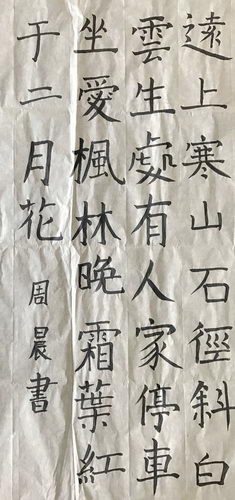 遠上寒山石徑斜白
雲生處有人家停車
坐愛楓林晚霜葉紅
于二月花
周晨書